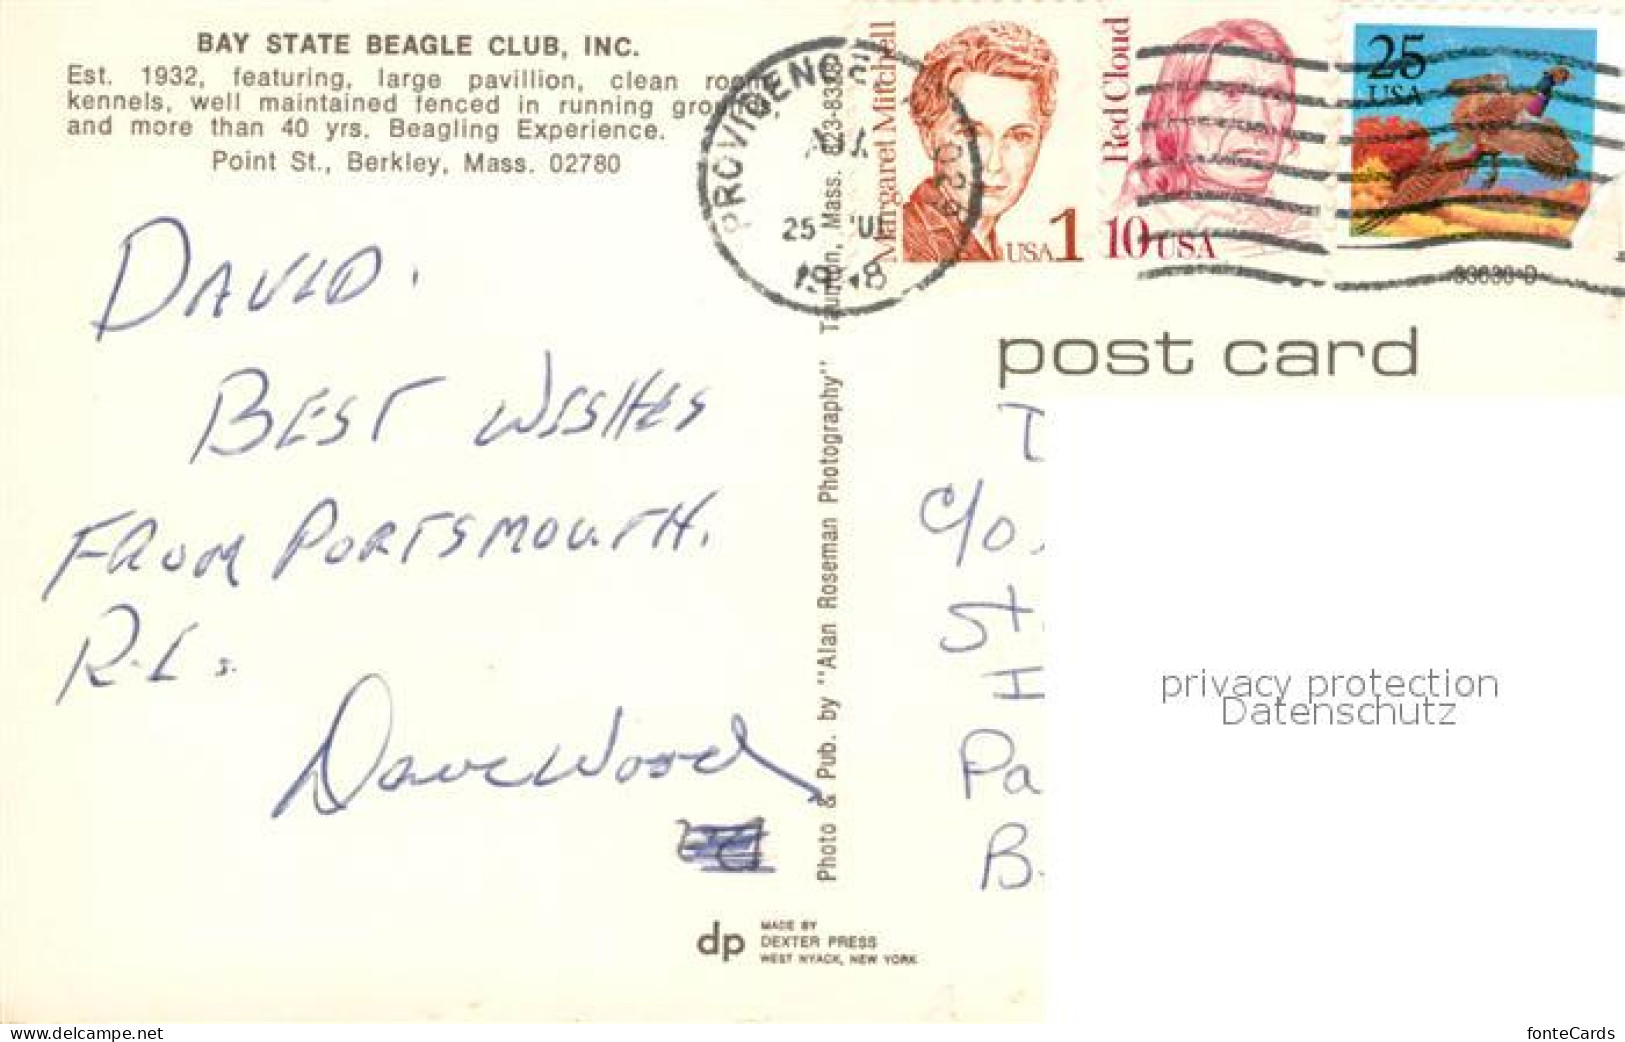 BAY STATE BEAGLE CLUB, INC.
Est. 1932, featuring, large pavillion, clean
kennels, well maintained fenced in running
and more than 40 yrs. Beagling Experience.
Point St., Berkley, Mass. 02780
PROVIDENC
029
25
19 8
Margaret Mitchell
USA 1
Red Cloud
10 USA
25
USA
post card
DAVID.
BEST WISHES
FROM PORTSMOUTH.
R.I.
Dave Wood
Photo & Pub. by "Alan Roseman Photography" Taunton, Mass.
c/o
St
H
Pa
B
privacy protection
Datenschutz
dp
MADE BY
DEXTER PRESS
WEST NYACK, NEW YORK
www.delcampe.net
fonteCards